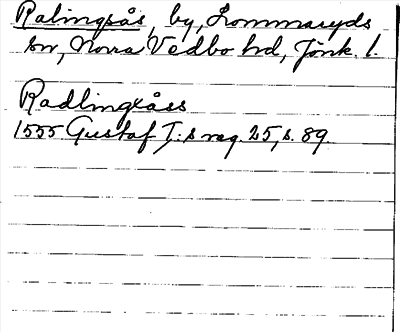 Ralingsås, by, Lommaryds
sn, Norra Vedbo hd, Jönk. l.
Radlingxåss
1555 Gustaf I:s reg. 25, s. 89.